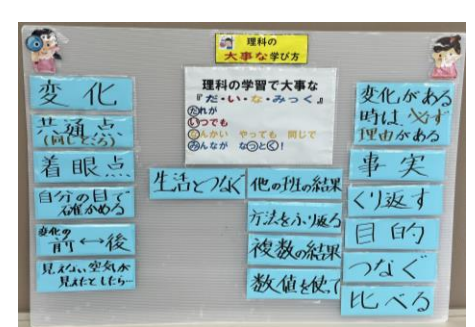 理科の
大事な学び方
理科の学習で大事な
『だ・い・な・みっく』
だれが
いつでも
なんかい やっても 同じで
みんなが なっとく!
変化
共通点
(同じところ)
着眼点
自分の目で
確かめる
変化の
前↔後
見えない空気が
見えたとしたら…
生活とつなぐ
他の班の結果
方法をふり返る
複数の結果
数値を使って
変化がある
時は、必ず
理由がある
事実
くり返す
目的
つなぐ
比べる